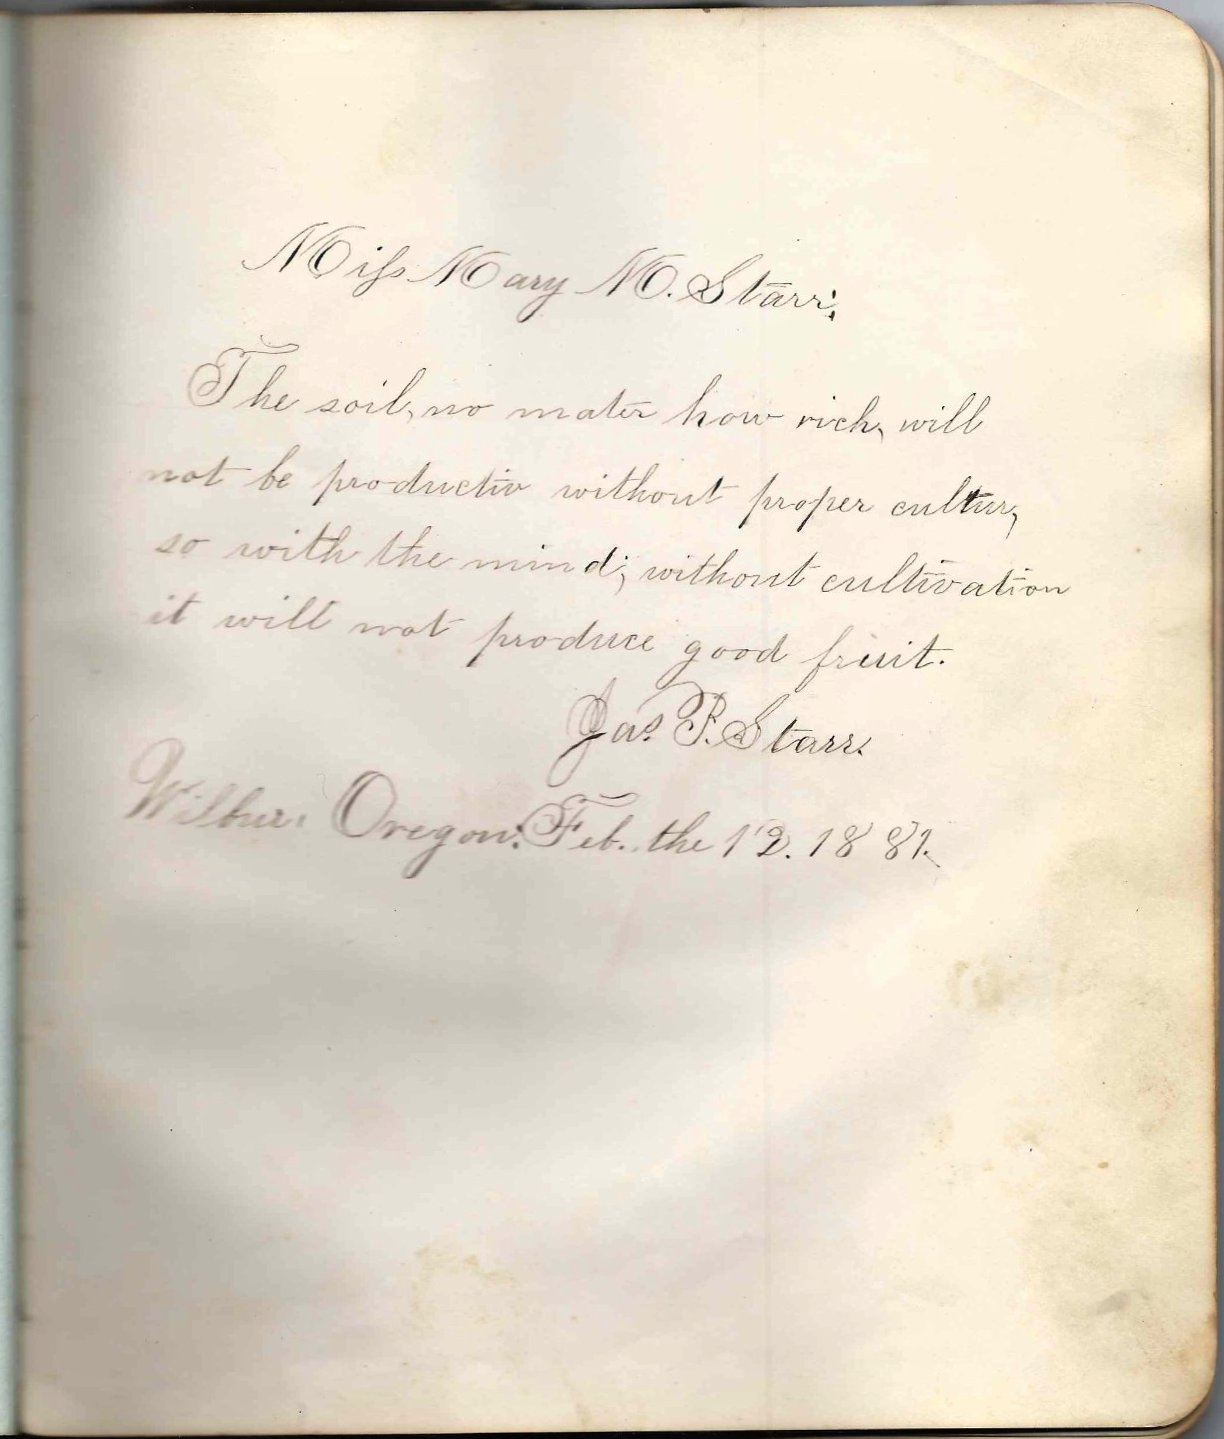 Miſs Mary M. Starr;
The soil, no mater how rich, will
not be productiv without proper cultur,
so with the mind; without cultivation
it will not produce good fruit.
Jas. P. Starr.
Wilbur. Oregon. Feb. the 12. 1881.